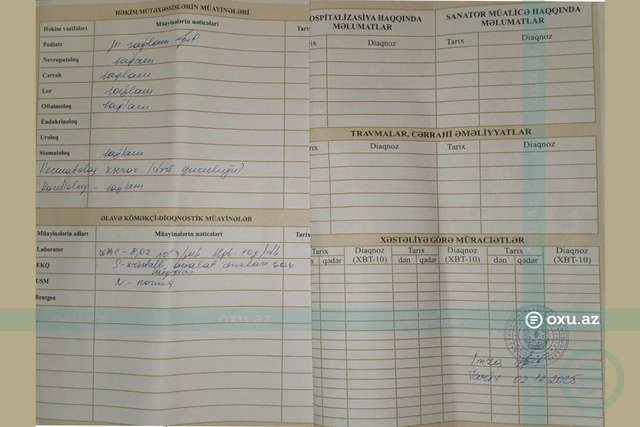 HƏKİM MÜTƏXƏSSİSLƏRİN MÜAYİNƏLƏRİ
Həkim vəzifələri Müayinələrin nəticələri Tari
Pediatr sağlam
Nevropatoloq sağlam
Cərrah sağlam
Lor sağlam
Oftalmoloq sağlam
Endokrinoloq
Uroloq
Stomatoloq sağlam
Dermatoloq (dəri quruluğu)
Kardioloq - sağlam
ƏLAVƏ KÖMƏKÇİ-DİOQNOSTİK MÜAYİNƏLƏR
Müayinələrin adları Müayinələrin nəticələri Tari
Laborator WBC - 8,02
EKQ
USM N - norma
Rentgen
OSPİTALİZASİYA HAQQINDA
MƏLUMATLAR
rix Diaqnoz
SANATOR MÜALİCƏ HAQQINDA
MƏLUMATLAR
Tarix Diaqnoz
TRAVMALAR, CƏRRAHİ ƏMƏLİYYATLAR
rix Diaqnoz Tarix Diaqnoz
XƏSTƏLİYƏ GÖRƏ MÜRACİƏTLƏR
Tarix Diaqnoz Tarix Diaqnoz Tarix Diaqnoz
n qədər (XBT-10) dən qədər (XBT-10) dən qədər (XBT-10)
oxu.az
İmza
Tarix 02.12.2025